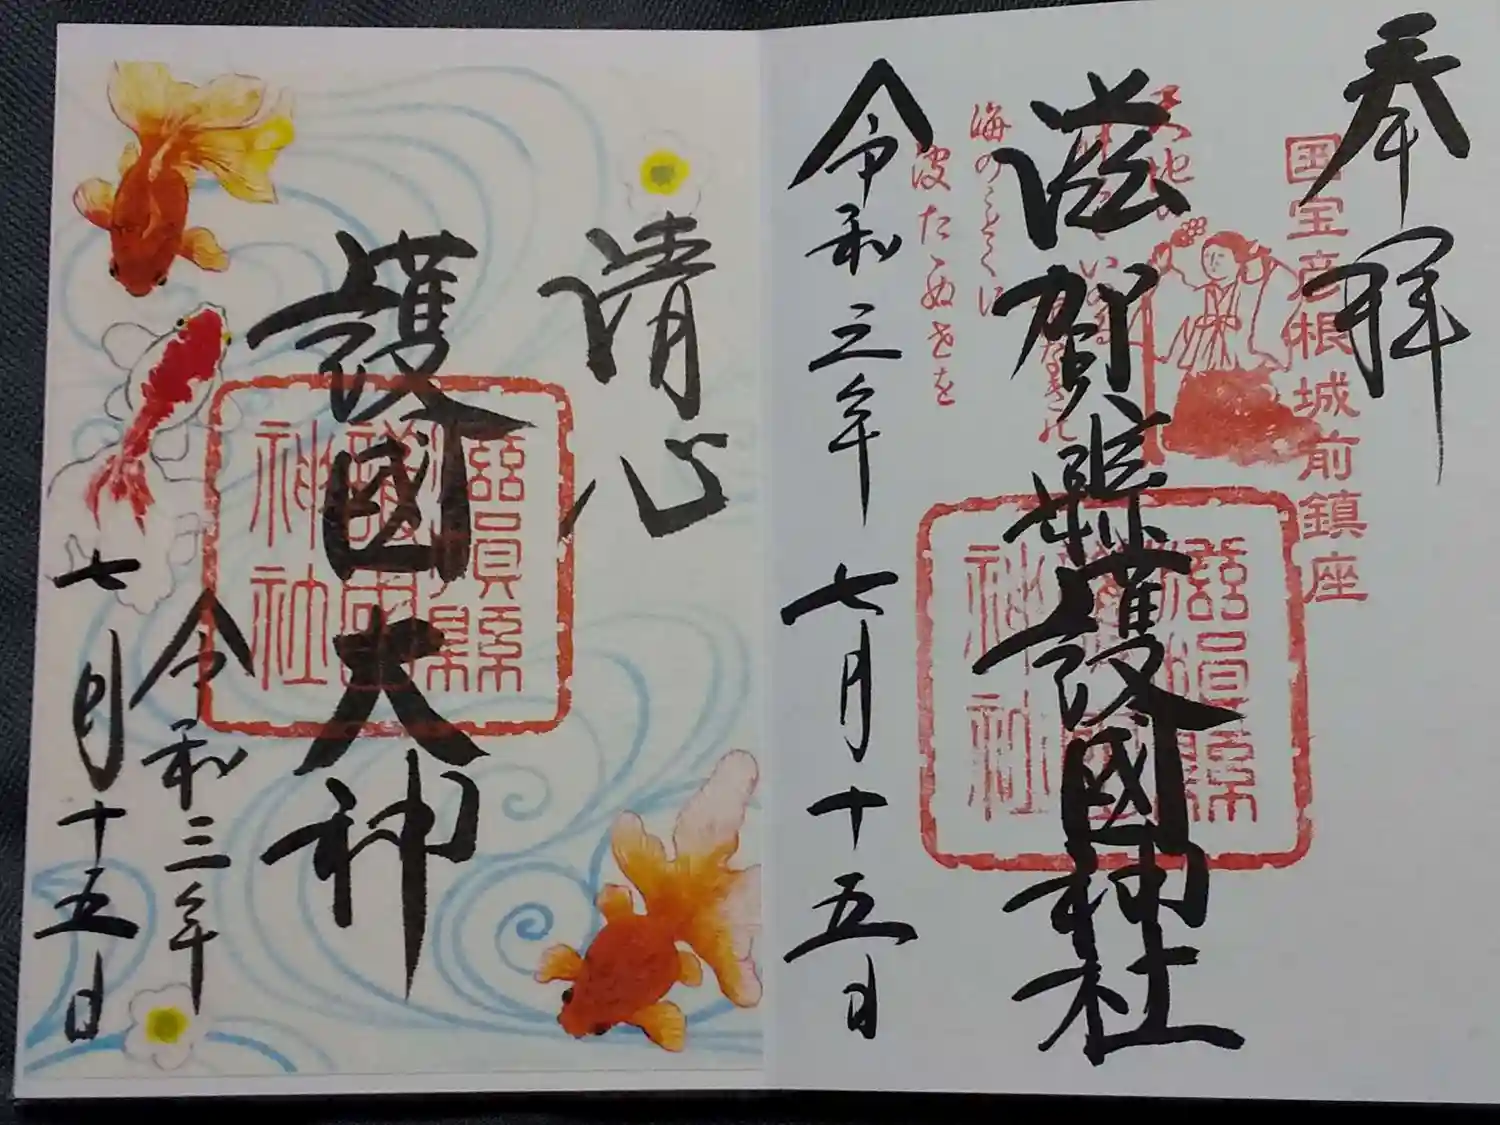 奉拝
国宝彦根城前鎮座
滋賀縣護國神社
滋賀縣
護國
神社
海のことくに
波たゝぬせを
令和三年七月十五日
清心
護國大神
滋賀縣
護國
神社
令和三年
七月十五日